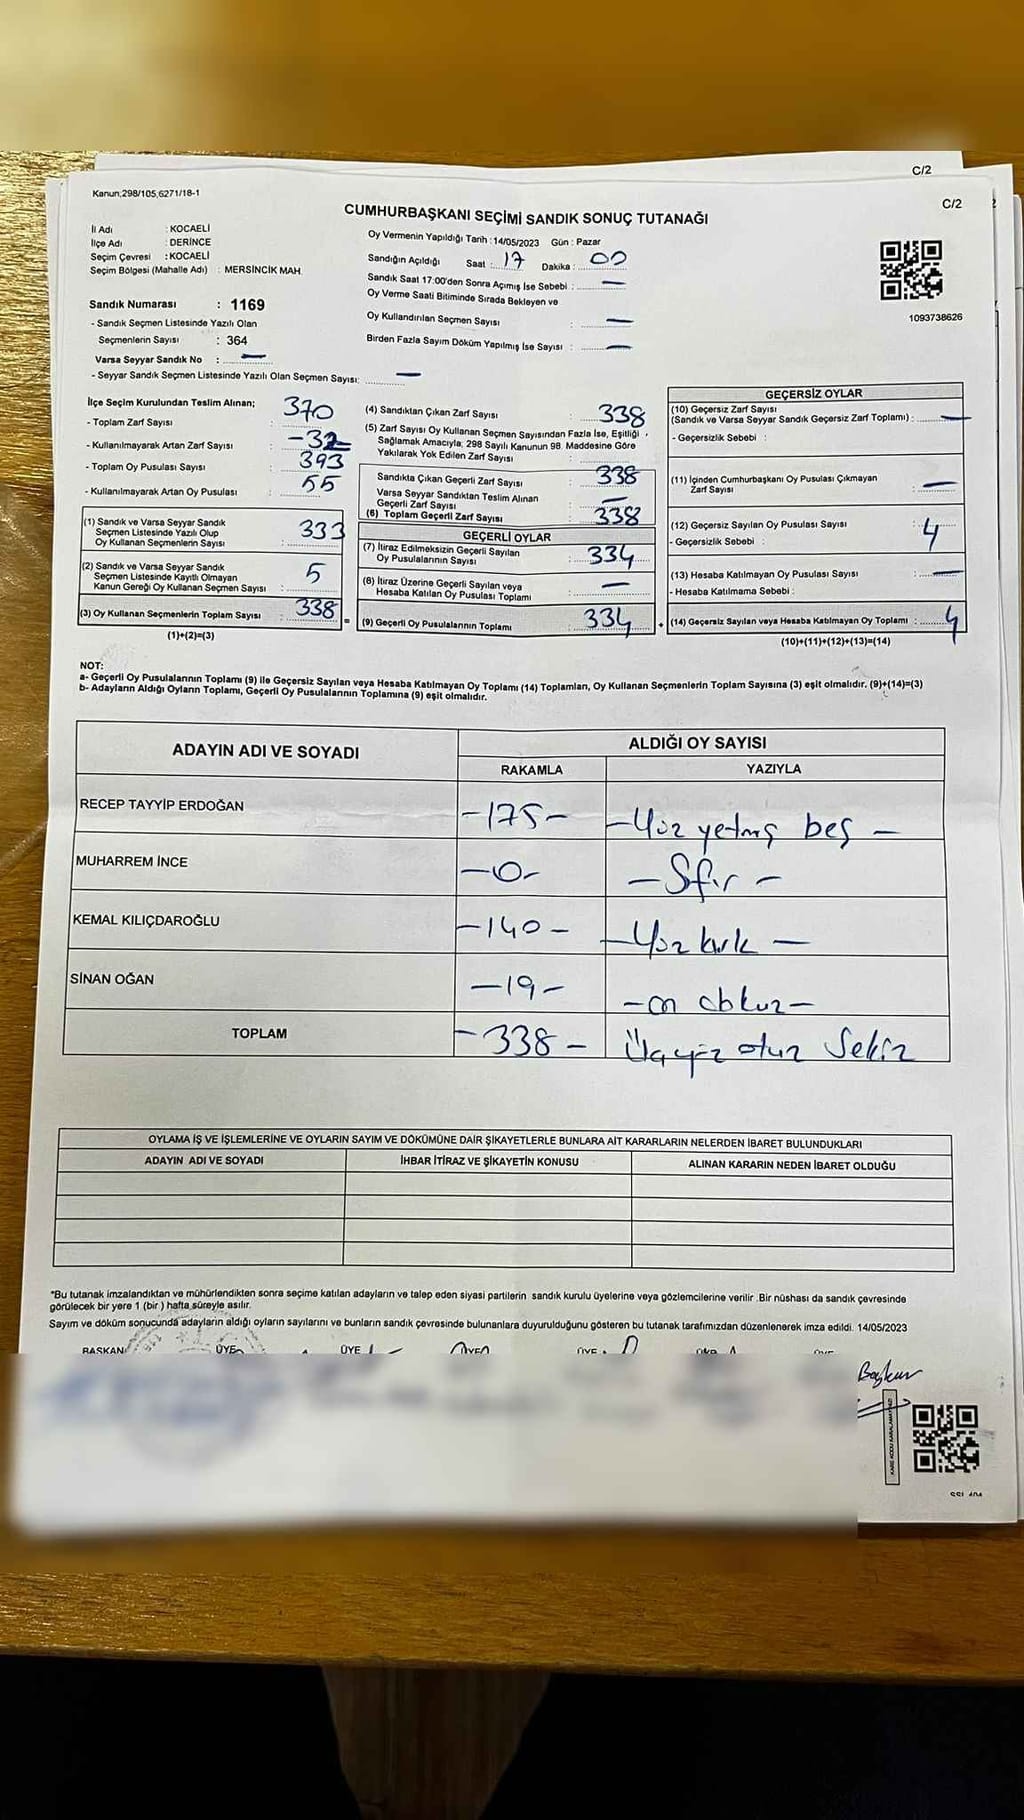 C/2
Kanun;298/105,6271/18-1
C/2
CUMHURBAŞKANI SEÇİMİ SANDIK SONUÇ TUTANAĞI
İl Adı : KOCAELİ
İlçe Adı : DERİNCE
Seçim Çevresi : KOCAELİ
Seçim Bölgesi (Mahalle Adı) : MERSİNCİK MAH.
Oy Vermenin Yapıldığı Tarih : 14/05/2023 Gün : Pazar
Sandığın Açıldığı Saat : 17 Dakika : 00
Sandık Saat 17:00'den Sonra Açımış İse Sebebi : —
Oy Verme Saati Bitiminde Sırada Bekleyen ve
Oy Kullandırılan Seçmen Sayısı : —
Birden Fazla Sayım Döküm Yapılmış İse Sayısı : —
1093738626
Sandık Numarası : 1169
- Sandık Seçmen Listesinde Yazılı Olan
Seçmenlerin Sayısı : 364
Varsa Seyyar Sandık No : —
- Seyyar Sandık Seçmen Listesinde Yazılı Olan Seçmen Sayısı: —
İlçe Seçim Kurulundan Teslim Alınan;
- Toplam Zarf Sayısı : 370
- Kullanılmayarak Artan Zarf Sayısı : -32
- Toplam Oy Pusulası Sayısı : 393
- Kullanılmayarak Artan Oy Pusulası : 55
(1) Sandık ve Varsa Seyyar Sandık
Seçmen Listesinde Yazılı Olup
Oy Kullanan Seçmenlerin Sayısı : 333
(2) Sandık ve Varsa Seyyar Sandık
Seçmen Listesinde Kayıtlı Olmayan
Kanun Gereği Oy Kullanan Seçmen Sayısı : 5
(3) Oy Kullanan Seçmenlerin Toplam Sayısı : 338
(1)+(2)=(3)
=
(4) Sandıktan Çıkan Zarf Sayısı : 338
(5) Zarf Sayısı Oy Kullanan Seçmen Sayısından Fazla İse, Eşitliği
Sağlamak Amacıyla, 298 Sayılı Kanunun 98. Maddesine Göre
Yakılarak Yok Edilen Zarf Sayısı :
Sandıkta Çıkan Geçerli Zarf Sayısı : 338
Varsa Seyyar Sandıktan Teslim Alınan
Geçerli Zarf Sayısı : —
(6) Toplam Geçerli Zarf Sayısı : 338
GEÇERLİ OYLAR
(7) İtiraz Edilmeksizin Geçerli Sayılan
Oy Pusulalarının Sayısı : 334
(8) İtiraz Üzerine Geçerli Sayılan veya
Hesaba Katılan Oy Pusulası Toplamı : —
(9) Geçerli Oy Pusulalarının Toplamı : 334
+
GEÇERSİZ OYLAR
(10) Geçersiz Zarf Sayısı
(Sandık ve Varsa Seyyar Sandık Geçersiz Zarf Toplamı) : —
- Geçersizlik Sebebi :
(11) İçinden Cumhurbaşkanı Oy Pusulası Çıkmayan
Zarf Sayısı : —
(12) Geçersiz Sayılan Oy Pusulası Sayısı : 4
- Geçersizlik Sebebi :
(13) Hesaba Katılmayan Oy Pusulası Sayısı : —
- Hesaba Katılmama Sebebi :
(14) Geçersiz Sayılan veya Hesaba Katılmayan Oy Toplamı : 4
(10)+(11)+(12)+(13)=(14)
NOT:
a- Geçerli Oy Pusulalarının Toplamı (9) ile Geçersiz Sayılan veya Hesaba Katılmayan Oy Toplamı (14) Toplamları, Oy Kullanan Seçmenlerin Toplam Sayısına (3) eşit olmalıdır. (9)+(14)=(3)
b- Adayların Aldığı Oyların Toplamı, Geçerli Oy Pusulalarının Toplamına (9) eşit olmalıdır.
ADAYIN ADI VE SOYADI
ALDIĞI OY SAYISI
RAKAMLA YAZIYLA
RECEP TAYYİP ERDOĞAN -175- -Yüz yetmiş beş -
MUHARREM İNCE -0- -Sıfır -
KEMAL KILIÇDAROĞLU -140- -Yüz kırk -
SİNAN OĞAN -19- -on dokuz-
TOPLAM -338- Üçyüz otuz Sekiz
OYLAMA İŞ VE İŞLEMLERİNE VE OYLARIN SAYIM VE DÖKÜMÜNE DAİR ŞİKAYETLERLE BUNLARA AİT KARARLARIN NELERDEN İBARET BULUNDUKLARI
ADAYIN ADI VE SOYADI İHBAR İTİRAZ VE ŞİKAYETİN KONUSU ALINAN KARARIN NEDEN İBARET OLDUĞU
*Bu tutanak imzalandıktan ve mühürlendikten sonra seçime katılan adayların ve talep eden siyasi partilerin sandık kurulu üyelerine veya gözlemcilerine verilir .Bir nüshası da sandık çevresinde
görülecek bir yere 1 (bir ) hafta süreyle asılır.
Sayım ve döküm sonucunda adayların aldığı oyların sayılarını ve bunların sandık çevresinde bulunanlara duyurulduğunu gösteren bu tutanak tarafımızdan düzenlenerek imza edildi. 14/05/2023
BAŞKAN ÜYE ÜYE ÜYE ÜYE
Başkan